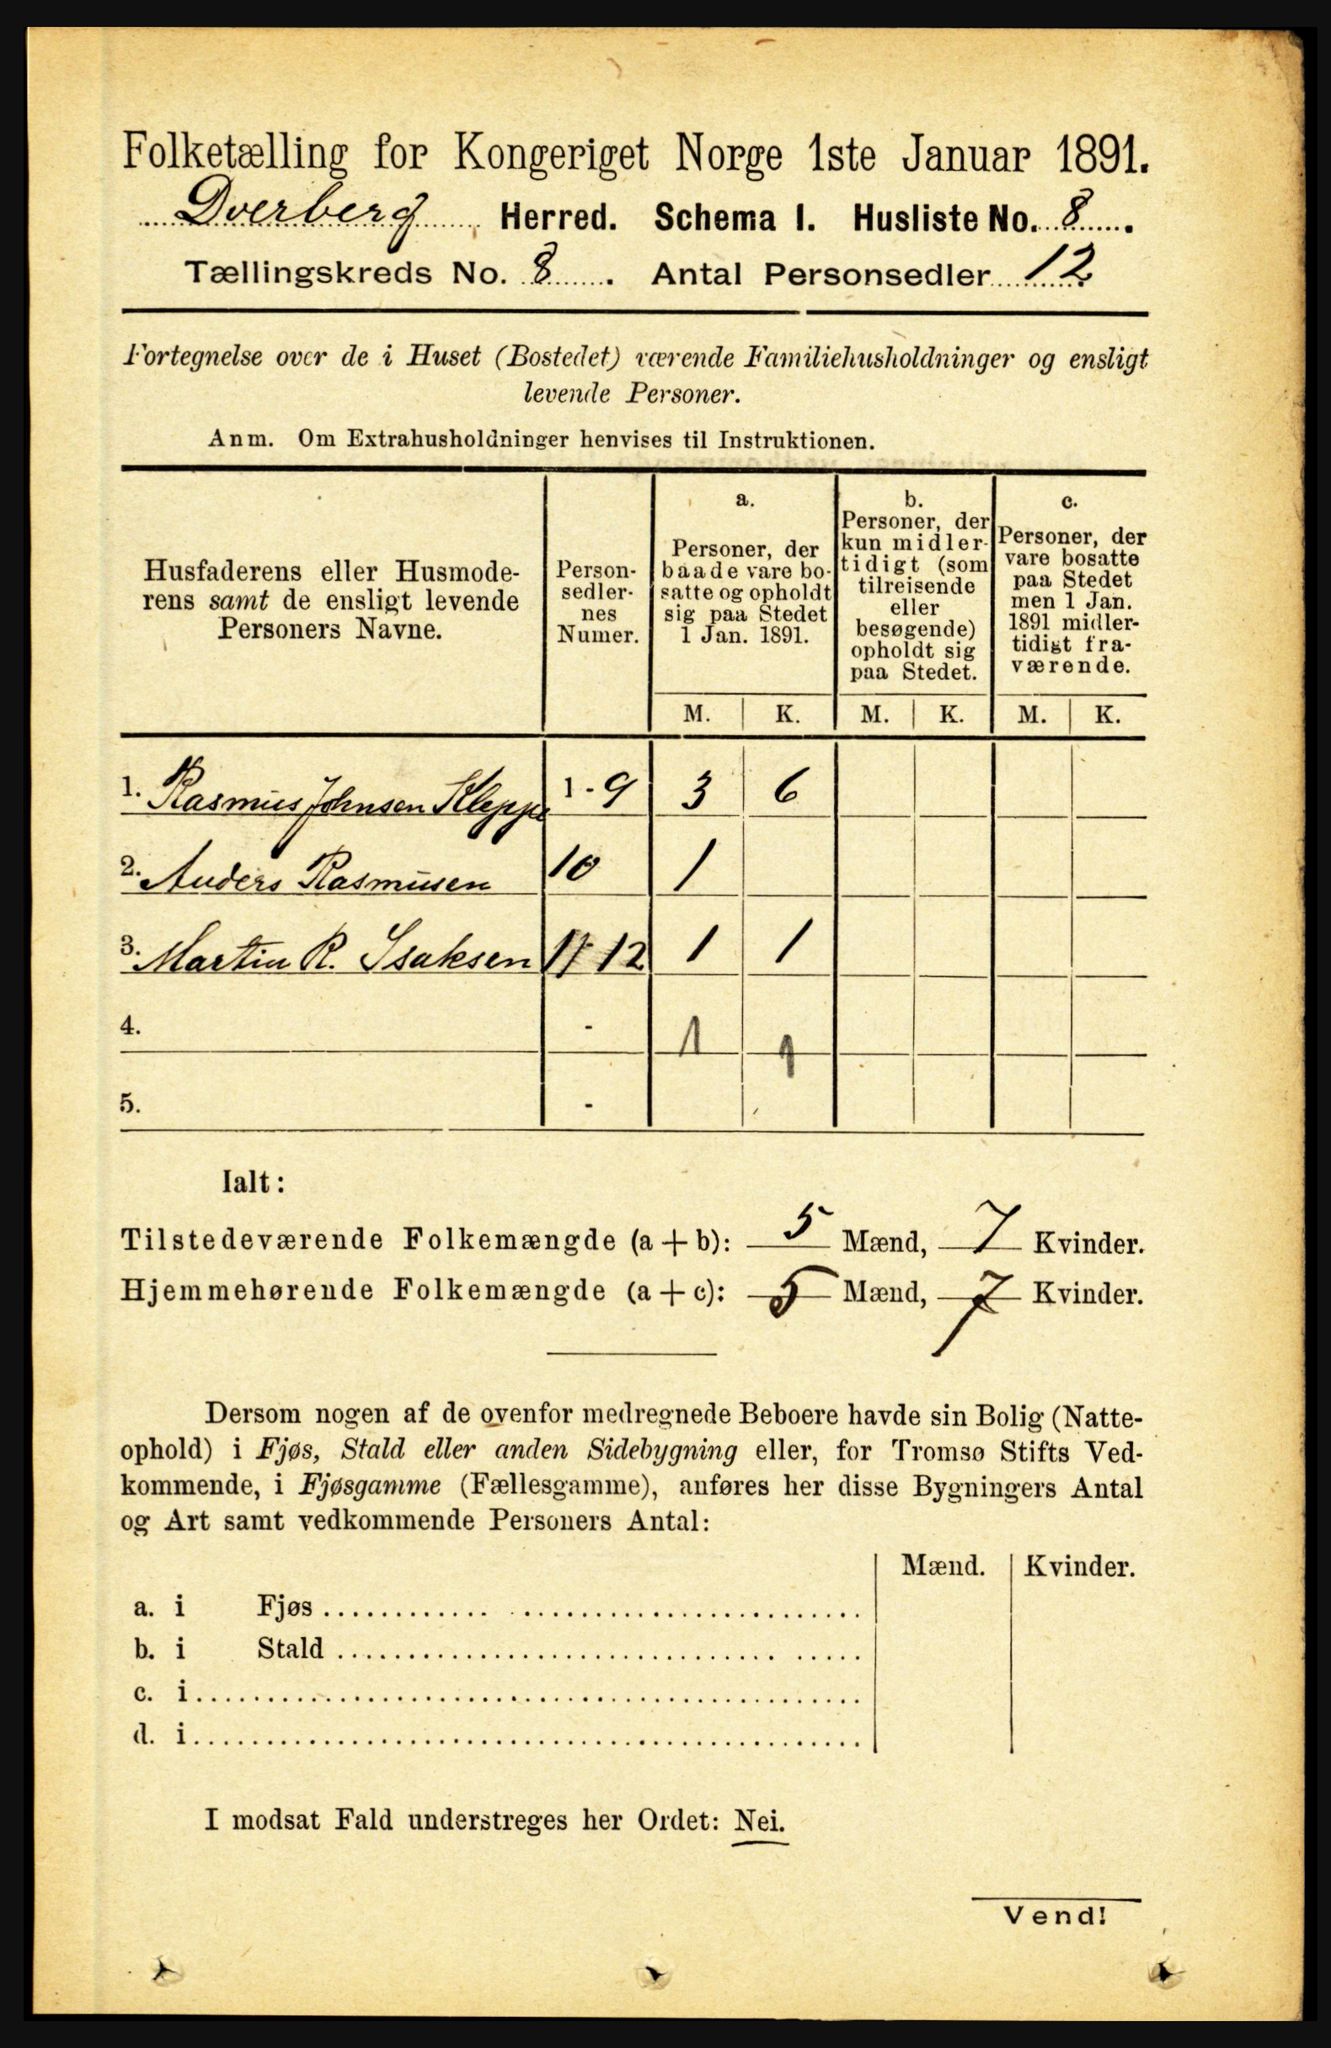 Folketælling for Kongeriget Norge 1ste Januar 1891.
Dverberg Herred. Schema I. Husliste No. 8.
Tællingskreds No. 8. Antal Personsedler 12
Fortegnelse over de i Huset (Bostedet) værende Familiehusholdninger og ensligt
levende Personer.
Anm. Om Extrahusholdninger henvises til Instruktionen.
Husfaderens eller Husmode-
rens samt de ensligt levende
Personers Navne.
Person-
sedler-
nes
Numer.
a.
Personer, der
baade vare bo-
satte og opholdt
sig paa Stedet
1 Jan. 1891.
b.
Personer, der
kun midler-
tidigt (som
tilreisende
eller
besøgende)
opholdt sig
paa Stedet.
c.
Personer, der
vare bosatte
paa Stedet
men 1 Jan.
1891 midler-
tidigt fra-
værende.
M. K. M. K. M. K.
1. Rasmus Johnsen Kleppe 1-9 3 6
2. Anders Rasmusen 10 1
3. Martin R. Isaksen 11 12 1 1
4. - 1 1
5. -
Ialt:
Tilstedeværende Folkemængde (a+b): 5 Mænd, 7 Kvinder.
Hjemmehørende Folkemængde (a+c): 5 Mænd, 7 Kvinder.
Dersom nogen af de ovenfor medregnede Beboere havde sin Bolig (Natte-
ophold) i Fjøs, Stald eller anden Sidebygning eller, for Tromsø Stifts Ved-
kommende, i Fjøsgamme (Fællesgamme), anføres her disse Bygningers Antal
og Art samt vedkommende Personers Antal:
Mænd. Kvinder.
a. i Fjøs
b. i Stald
c. i
d. i
I modsat Fald understreges her Ordet: Nei.
Vend!